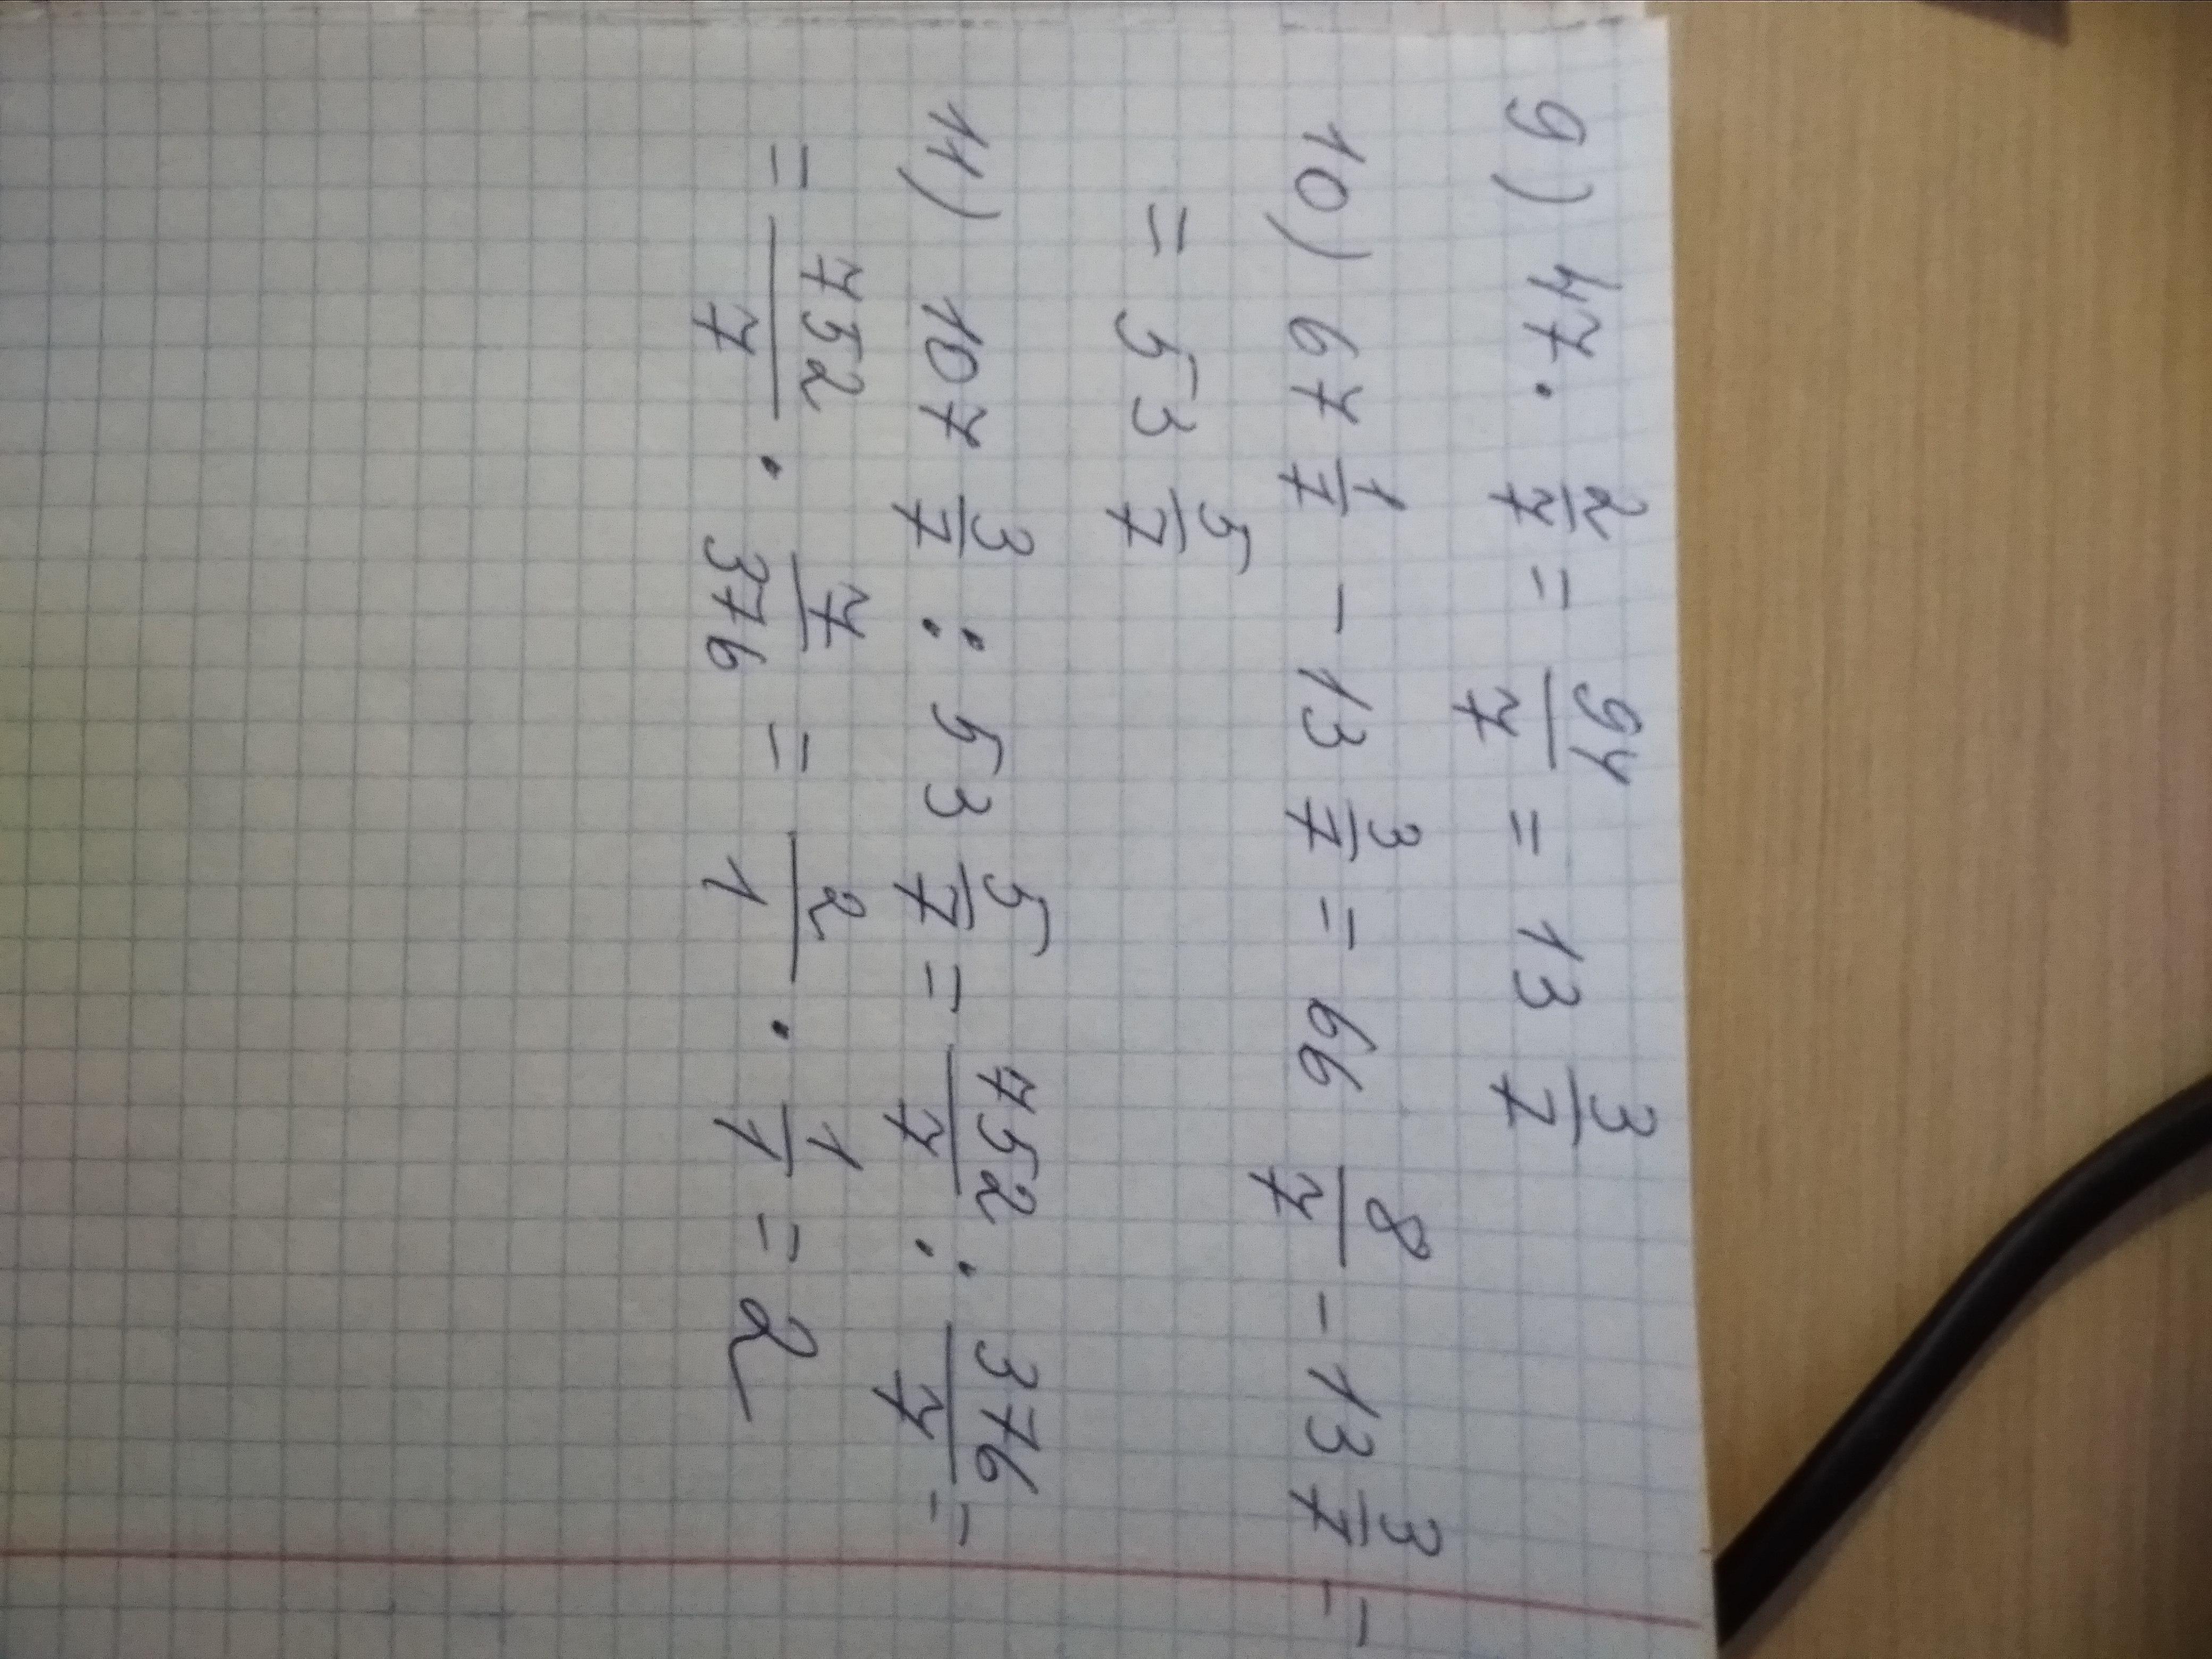 9) 47 · 2/7 = 94/7 = 13 3/7
10) 67 1/7 - 13 3/7 = 66 8/7 - 13 3/7 =
= 53 5/7
11) 107 3/7 : 53 5/7 = 752/7 : 376/7 =
= 752/7 · 7/376 = 2/1 · 1/1 = 2